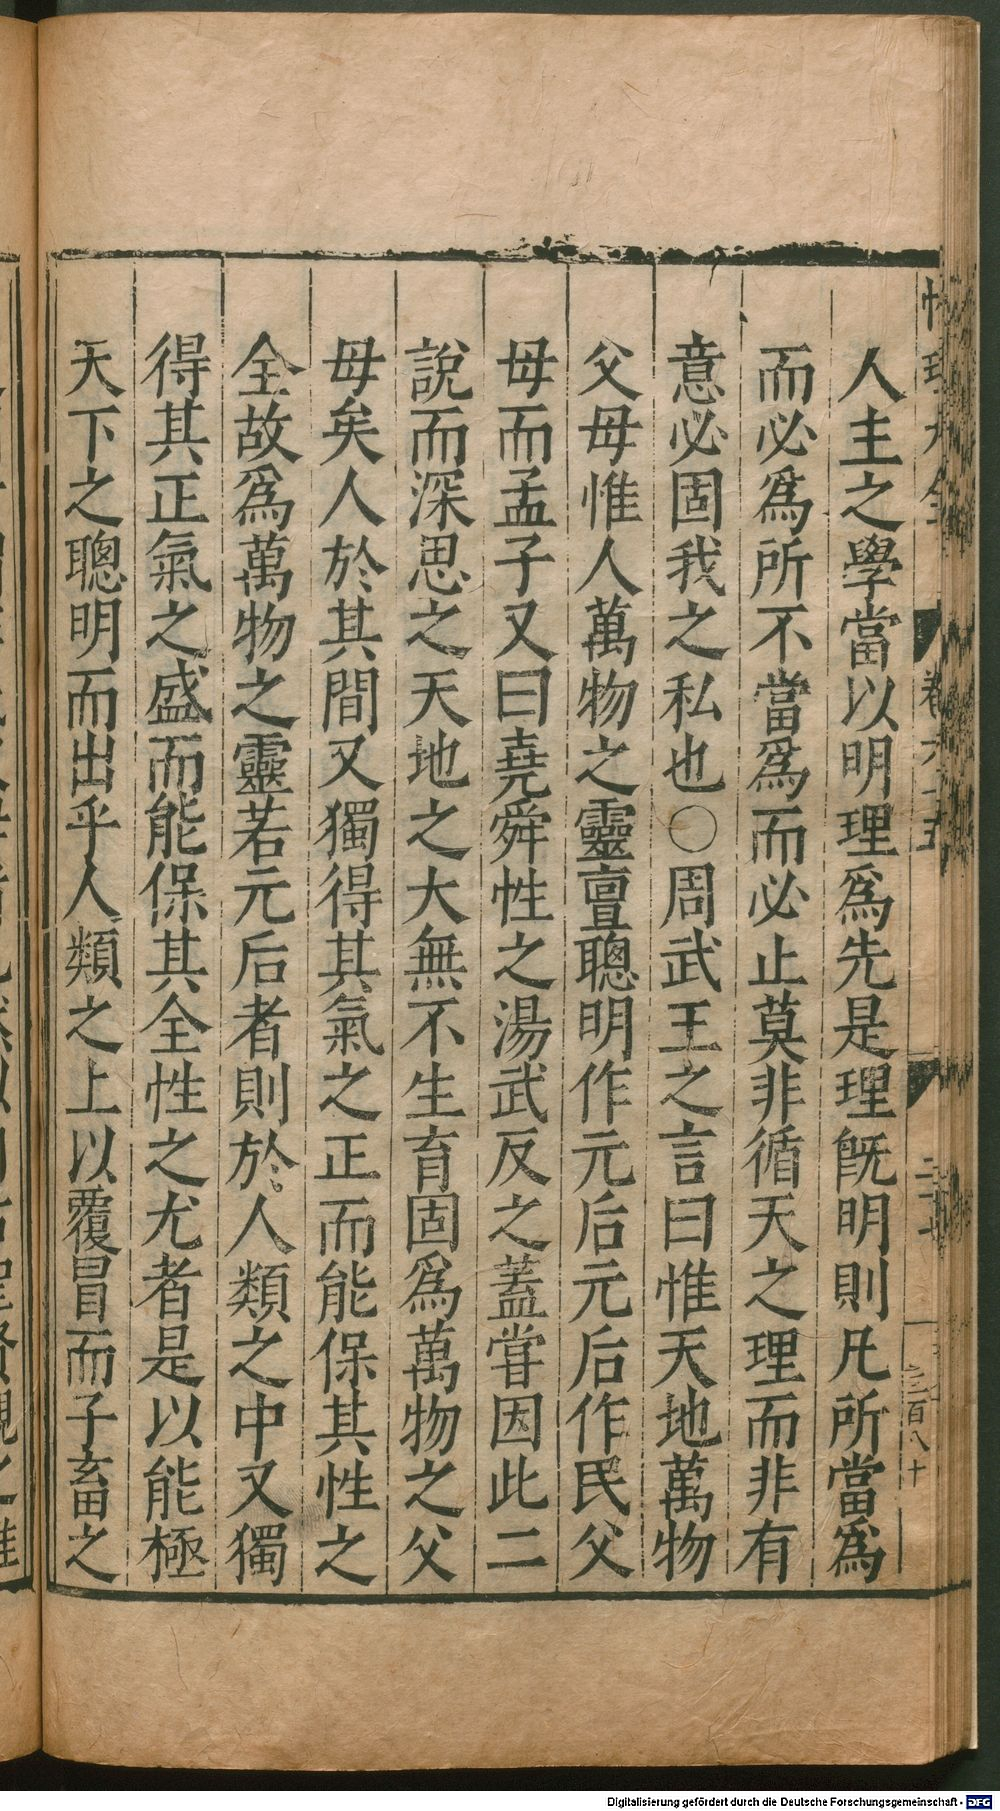 人主之學當以明理爲先是理旣明則凡所當爲
而必爲所不當爲而必止莫非循天之理而非有
意必固我之私也○周武王之言曰惟天地萬物
父母惟人萬物之靈亶聰明作元后元后作民父
母而孟子又曰堯舜性之湯武反之蓋甞因此二
說而深思之天地之大無不生育固爲萬物之父
母矣人於其間又獨得其氣之正而能保其性之
全故爲萬物之靈若元后者則於人類之中又獨
得其正氣之盛而能保其全性之尤者是以能極
天下之聰明而出乎人類之上以覆冒而子畜之
Digitalisierung gefördert durch die Deutsche Forschungsgemeinschaft - DFG